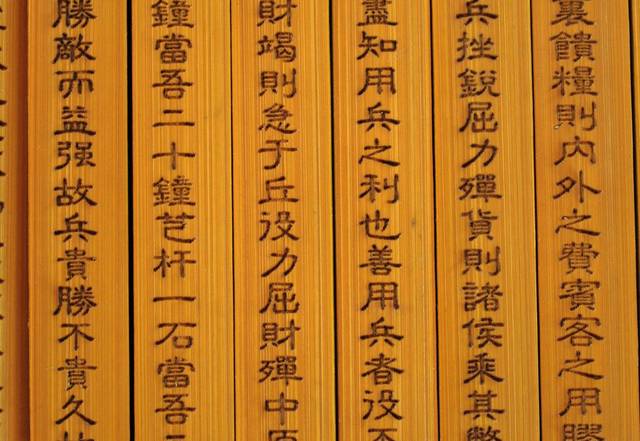 裏饋糧則内外之費賓客之用膠
兵挫銳屈力殫貨則諸侯乘其弊
盡知用兵之利也善用兵者役不
財竭則急于丘役力屈財殫中原
鐘當吾二十鐘芑杆一石當吾二
勝敵而益强故兵貴勝不貴久故